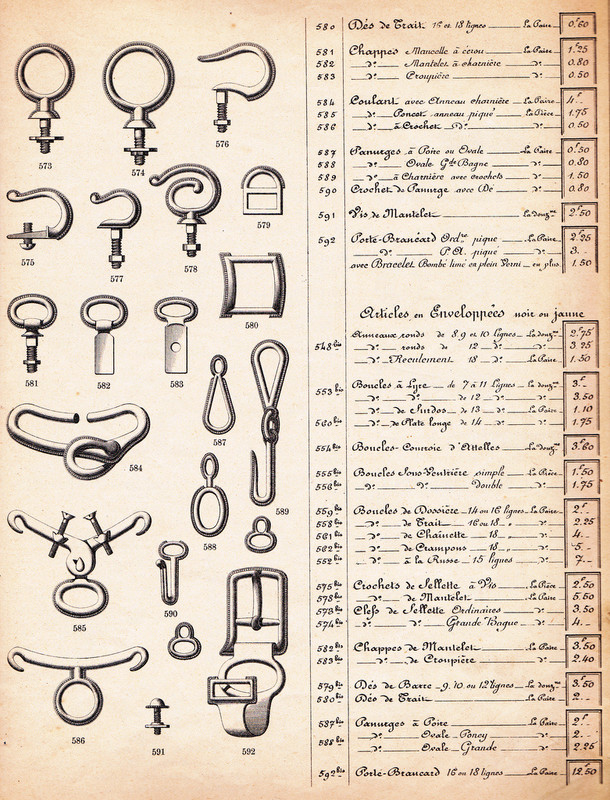 573
574
576
575
577
578
579
580
581
582
583
584
587
588
589
585
590
586
591
592
580 Dés de Trait 16 et 18 lignes La Paire 0.60
581 Chappes Mancelle à écrou La Paire 1.25
582 -dº- Mantelet à charnière -dº- 0.80
583 -dº- Croupière -dº- 0.50
584 Coulant avec Anneau charnière La Paire 4 "
585 -dº- Poncet anneau piqué La Pièce 1.75
586 -dº- à Crochet dº -dº- 0.50
587 Panurges à Poire ou Ovale La Paire 0.50
588 -dº- Ovale Gde Bague -dº- 0.80
589 -dº- à Charnière avec crochets -dº- 1.50
590 Crochet de Panurge avec Dé -dº- 0.80
591 Vis de Mantelet La douzne 2.50
592 Porte-Brancard Ordre piqué La Paire 2.25
-dº- P.A. piqué -dº- 3. -
avec Bracelet Bombé luné en plein Verni en plus 1.50
Articles en Enveloppées noir ou jaune
Anneaux ronds de 8.9 et 10 lignes La douzne 2.75
548 bis -dº- ronds de 12 -dº- -dº- 3.25
-dº- Reculement 18 -dº- -dº- 1.50
553 bis Boucles à Lyre de 7 à 11 lignes La douzne 3. -
-dº- dº de 12 -dº- -dº- 3.50
-dº- de Surdos de 13 -dº- La Paire 1.10
560 bis -dº- de Plate longe de 14 -dº- -dº- 1.75
554 bis Boucles-Courroie d'Attelles La douzne 3.60
555 bis Boucles Sous-Ventrière simple La Pièce 1.50
556 bis -dº- dº double -dº- 1.75
559 bis Boucles de Dossière 14 ou 16 lignes La Paire 2. -
558 bis -dº- de Trait 16 ou 18 " -dº- 2.25
561 bis -dº- de Chaînette 18 " -dº- 4. -
562 bis -dº- de Crampons 18 " -dº- 5. -
552 bis -dº- à la Russe 15 lignes -dº- 7. -
575 bis Crochets de Sellette à Vis La Pièce 2.50
578 bis -dº- de Mantelet La Paire 5.50
573 bis Clefs de Sellette Ordinaires -dº- 3.50
574 bis -dº- dº Grande Bague -dº- 4. -
582 bis Chappes de Mantelet La Paire 3.50
583 bis -dº- de Croupière -dº- 2.40
579 bis Dés de Barre 9, 10 ou 12 lignes La douzne 3.50
580 bis Dés de Trait La Paire 2. -
587 bis Panurges à Poire La Paire 2. -
588 bis -dº- Ovale Poney -dº- 2. -
-dº- Ovale Grande -dº- 2.25
592 bis Porte-Brancard 16 ou 18 lignes La Paire 12.50